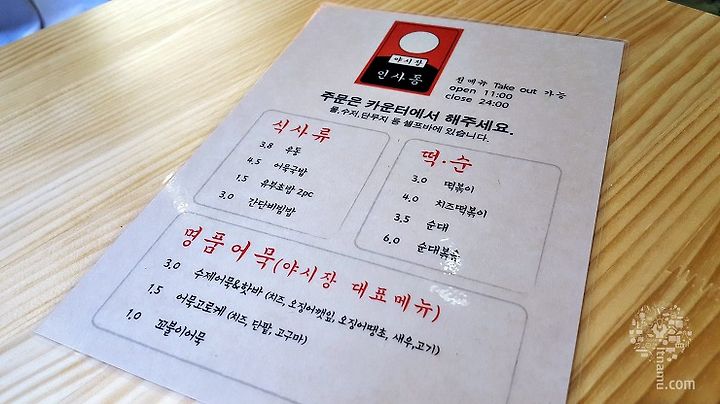 야시장
인사동
전메뉴 Take out 가능
open 11:00
close 24:00
주문은 카운터에서 해주세요.
물,수저,단무지 등 셀프바에 있습니다.
식사류
3.8 우동
4.5 어묵국밥
1.5 유부초밥 2pc
3.0 간단비빔밥
떡·순
3.0 떡볶이
4.0 치즈떡볶이
3.5 순대
6.0 순대볶음
명품어묵(야시장 대표메뉴)
3.0 수제어묵&핫바 (치즈, 오징어깻잎, 오징어땡초, 새우,고기)
1.5 어묵고로케 (치즈, 단팥, 고구마)
1.0 꼬불이어묵
itnamu.com